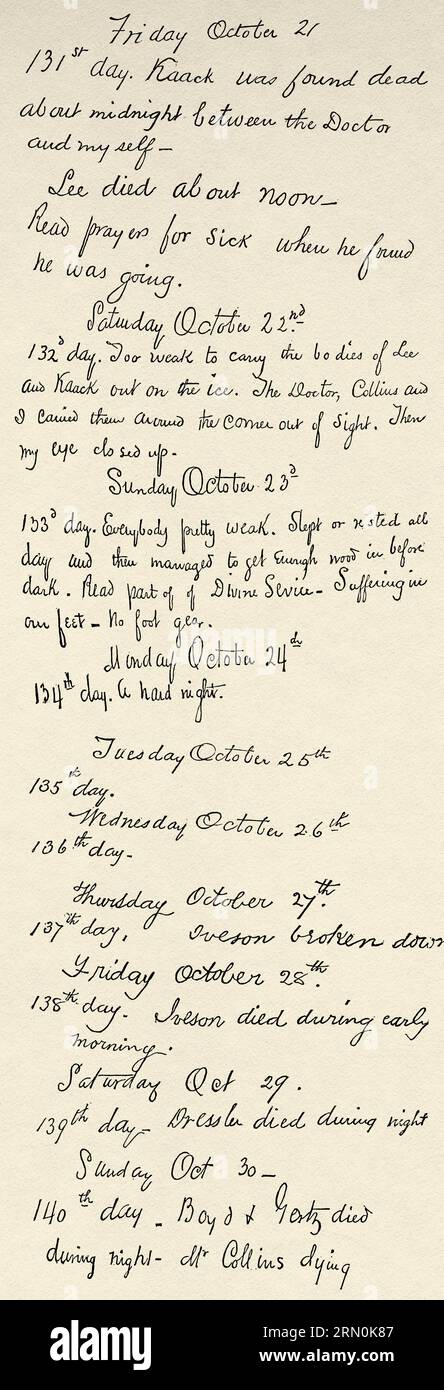 Friday October 21
131st day. Kaack was found dead
about midnight between the Doctor
and myself –
Lee died about noon –
Read prayers for sick when he found
he was going.
Saturday October 22nd
132d day. Too weak to carry the bodies of Lee
and Kaack out on the ice. The Doctor, Collins and
I carried them around the corner out of sight. Then
my eye closed up –
Sunday October 23d
133d day. Everybody pretty weak. Slept or rested all
day and then managed to get enough wood in before
dark. Read part of of Divine Service – Suffering in
our feet – No foot gear.
Monday October 24th
134th day. A hard night.
Tuesday October 25th
135th day.
Wednesday October 26th
136th day –
Thursday October 27th.
137th day. Iveson broken down
Friday October 28th.
138th day – Iveson died during early
morning.
Saturday Oct 29.
139th day – Dressler died during night
Sunday Oct 30 –
140th day – Boyd & Gertz died
during night – Mr Collins dying
alamy
a
a
a
alamy
Image ID: 2RN0K87
www.alamy.com